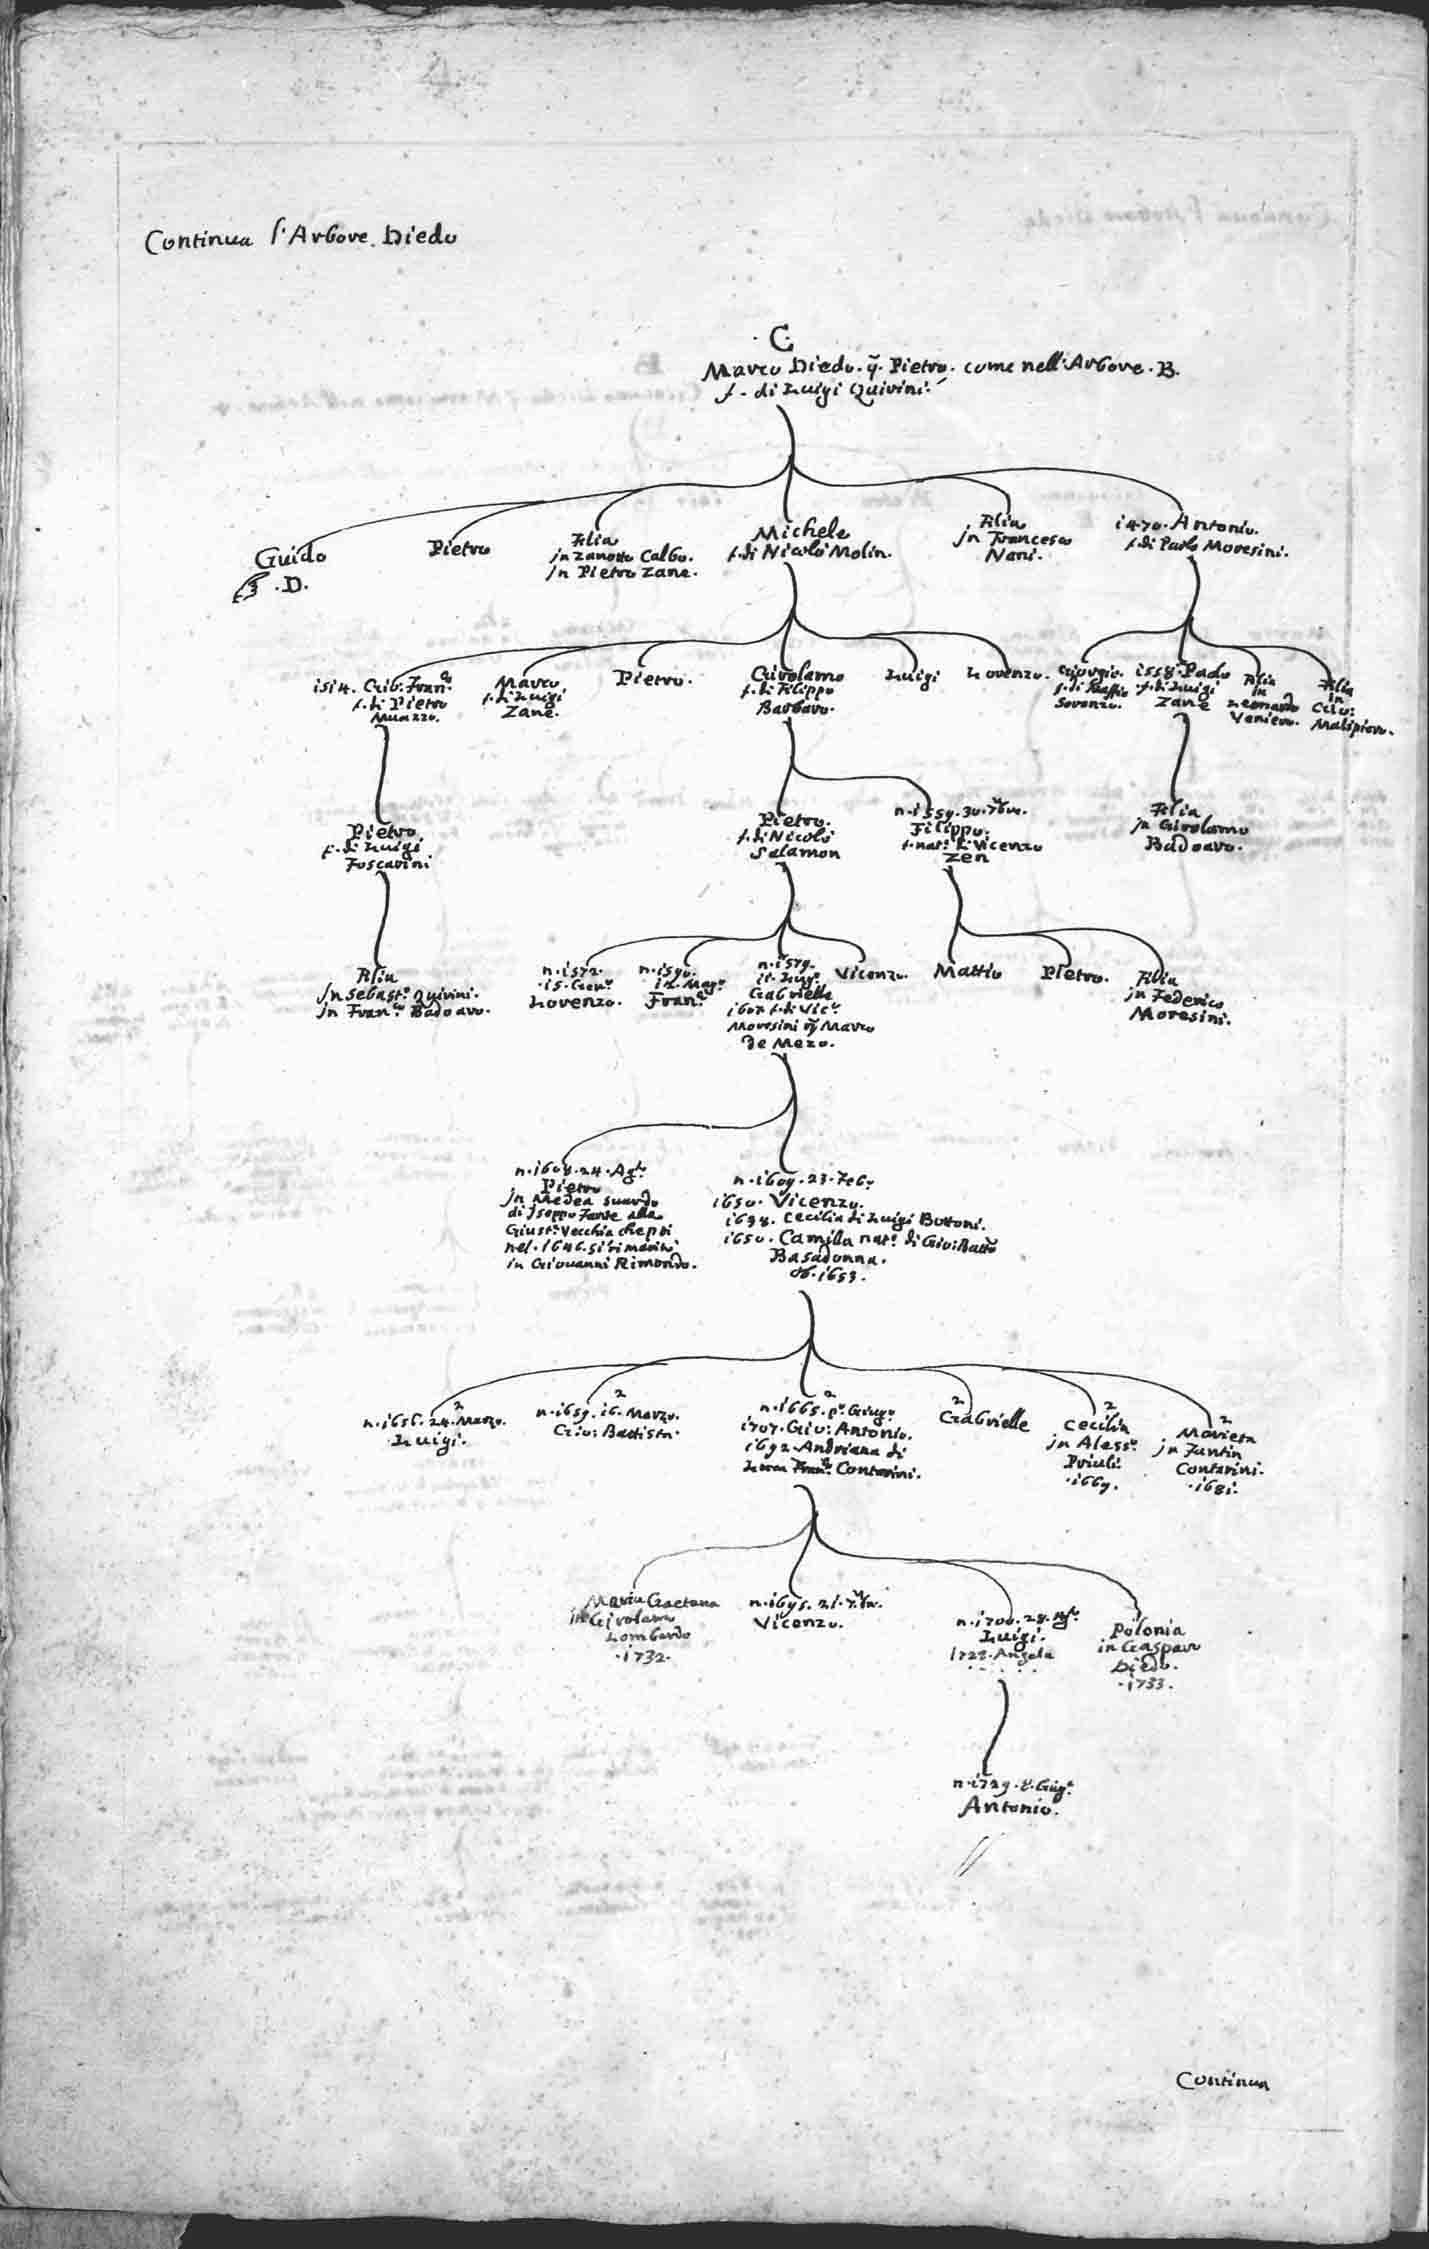 Continua l'Arbore Diedo
C
Marco Diedo q. Pietro. come nell'Arbore. B.
f. di Luigi Quirini.
Guido
D.
Pietro
Filia
jn Zanotto Calbo.
jn Pietro Zane.
Michele
f. di Nicolò Molin.
Filia
jn Francesco
Nani.
1470. Antonio.
f. di Paolo Moresini.
1514. Gio: Fran.co
f. di Pietro
Muazzo.
Marco
f. di Luigi
Zane.
Pietro.
Girolamo
f. di Filippo
Barbaro.
Luigi
Lorenzo.
Giorgio.
f. di
Soranzo.
1558. Paolo
f. di Luigi
Zane
Filia
in
Leonardo
Venier.
Filia
in
Malipiero.
Pietro.
f. di Luigi
Foscarini
Pietro.
f. di Nicolò
Salamon
n. 1559. 30. 7bre.
Filippo.
f. nat. di Vicenzo
Zen
Filia
jn Girolamo
Badoaro.
Filia
jn Sebast.o Quirini.
jn Fran.co Badoaro.
n. 1572.
15. Gen.o
Lorenzo.
n. 1590.
12. Mag.o
Fran.co
n. 1579.
Gabrielle
1607. f. di Vic.o
Moresini q. Marco
de Mezo.
Vicenzo.
Mattio
Pietro.
Filia
jn Federico
Moresini.
n. 1608. 24. Ag.to
Pietro
jn Medea
di Iseppo Fante alla
Giust.a Vecchia che poi
nel. 1646. si rimaritò
in Giovanni Rimondo.
n. 1609. 23. Feb.o
1650. Vicenzo.
Cecilia di Luigi Bottoni.
1650. Camilla nat. di Gio: Batta
Basadonna.
ob. 1653.
2
n. 1656. 24. Marzo.
Luigi.
2
n. 1659. 16. Marzo.
Gio: Battista.
2
n. 1665. p.o Giug.o
1707. Gio: Antonio.
1692. Andriana di
Fran.co Contarini.
2
Gabrielle
2
Cecilia
jn Aless.o
Priuli
1669.
2
Marieta
jn Fantin
Contarini.
1681.
Maria Gaetana
in Girolamo
Lombardo
1732.
n. 1695. 21. 7bre.
Vicenzo.
n. 1700. 28. Ag.to
Luigi.
1728. Angela
. . . . .
Polonia
in Gasparo
Diedo.
1733.
n. 1729. 8. Giug.o
Antonio.
Continua